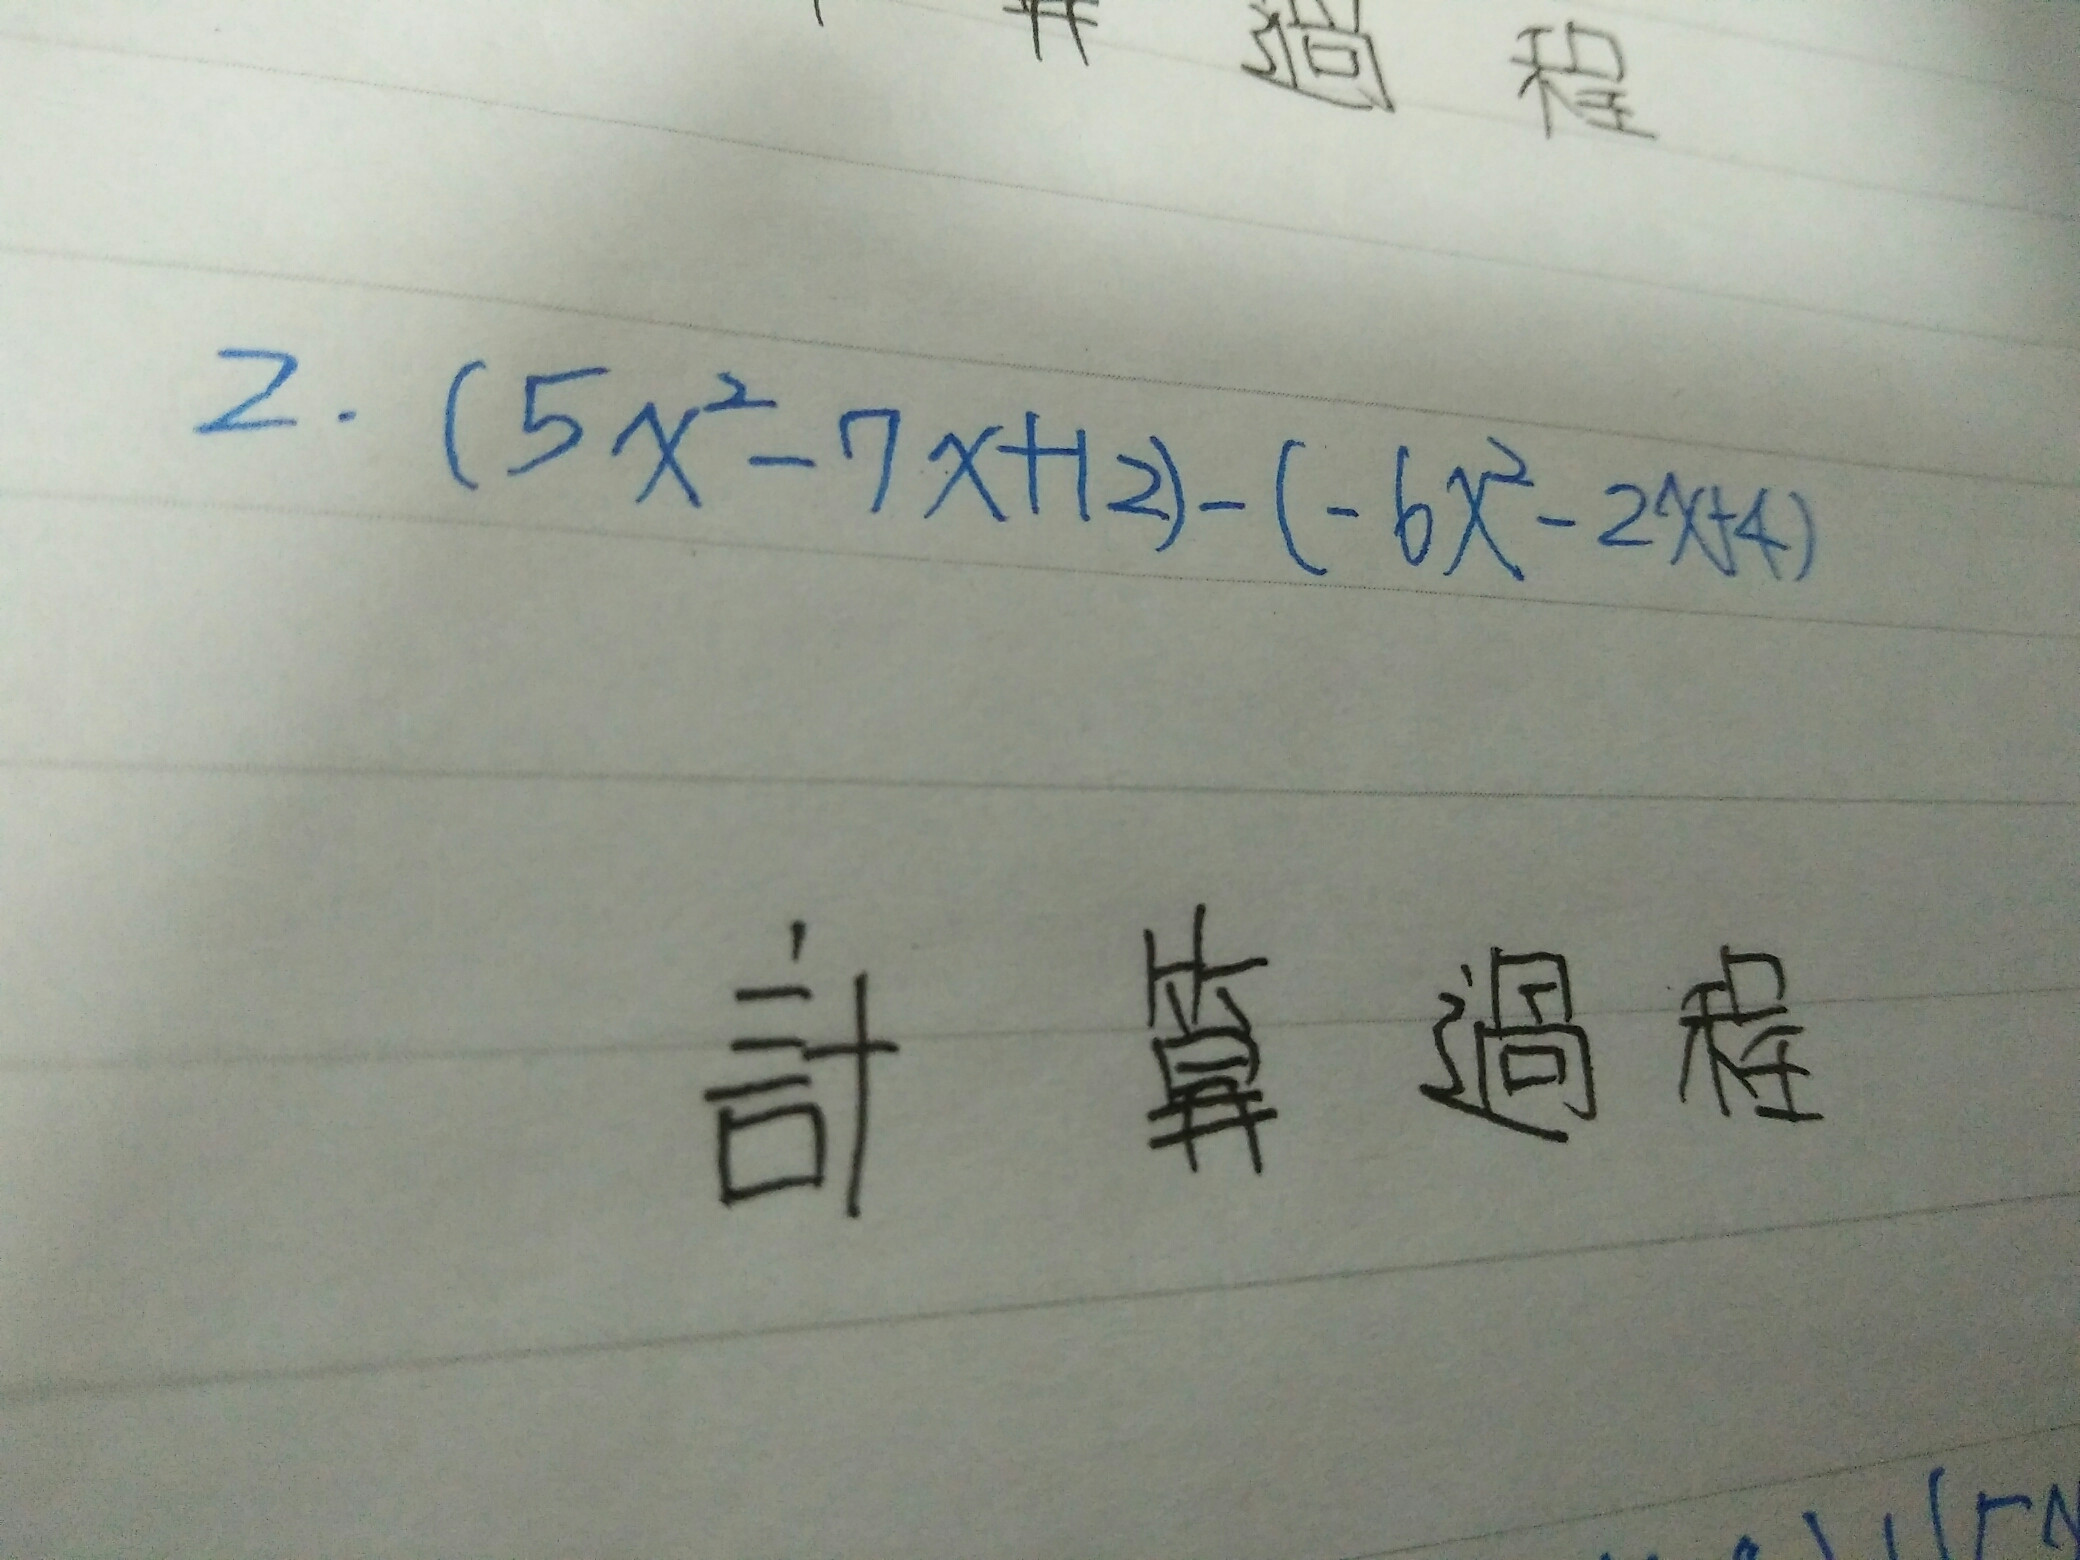 過程
2. (5x²-7x+12)-(-6x²-2x+4)
計算過程